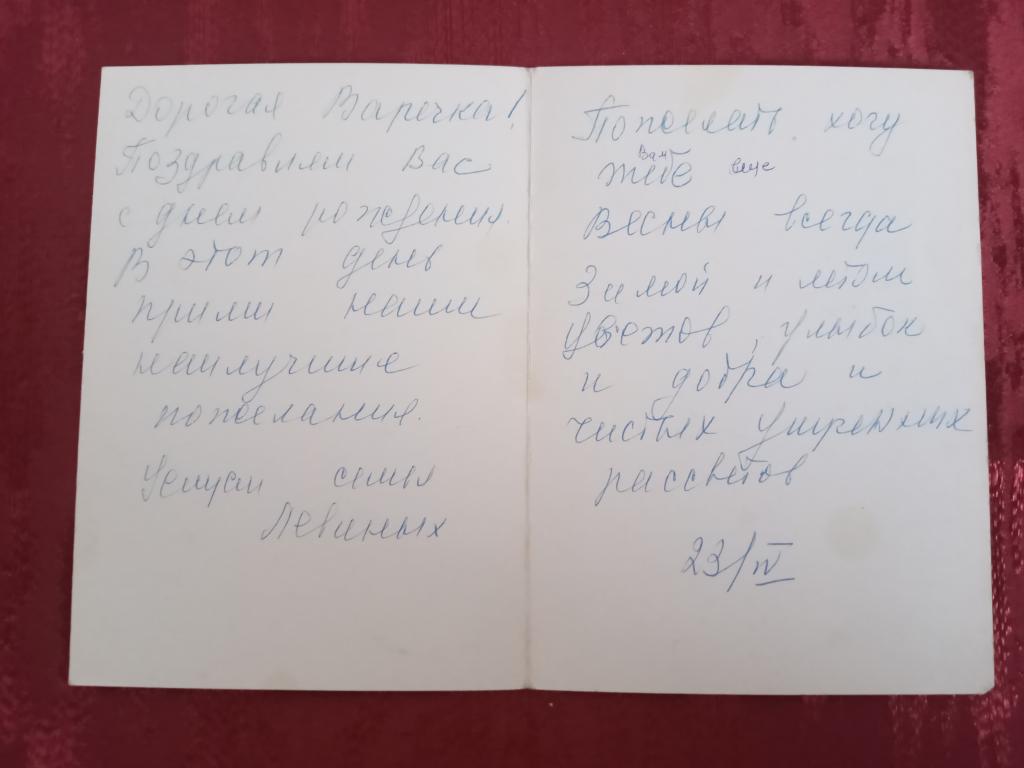 Дорогая Варечка!
Поздравляем Вас
с днем рождения.
В этот день
прими наши
наилучшие
пожелания.
семья
Левиных
Пожелать хочу
Вам
тебе еще
Весны всегда
Зимой и летом
Цветов, улыбок
и добра и
чистых утренних
рассветов
23/IV